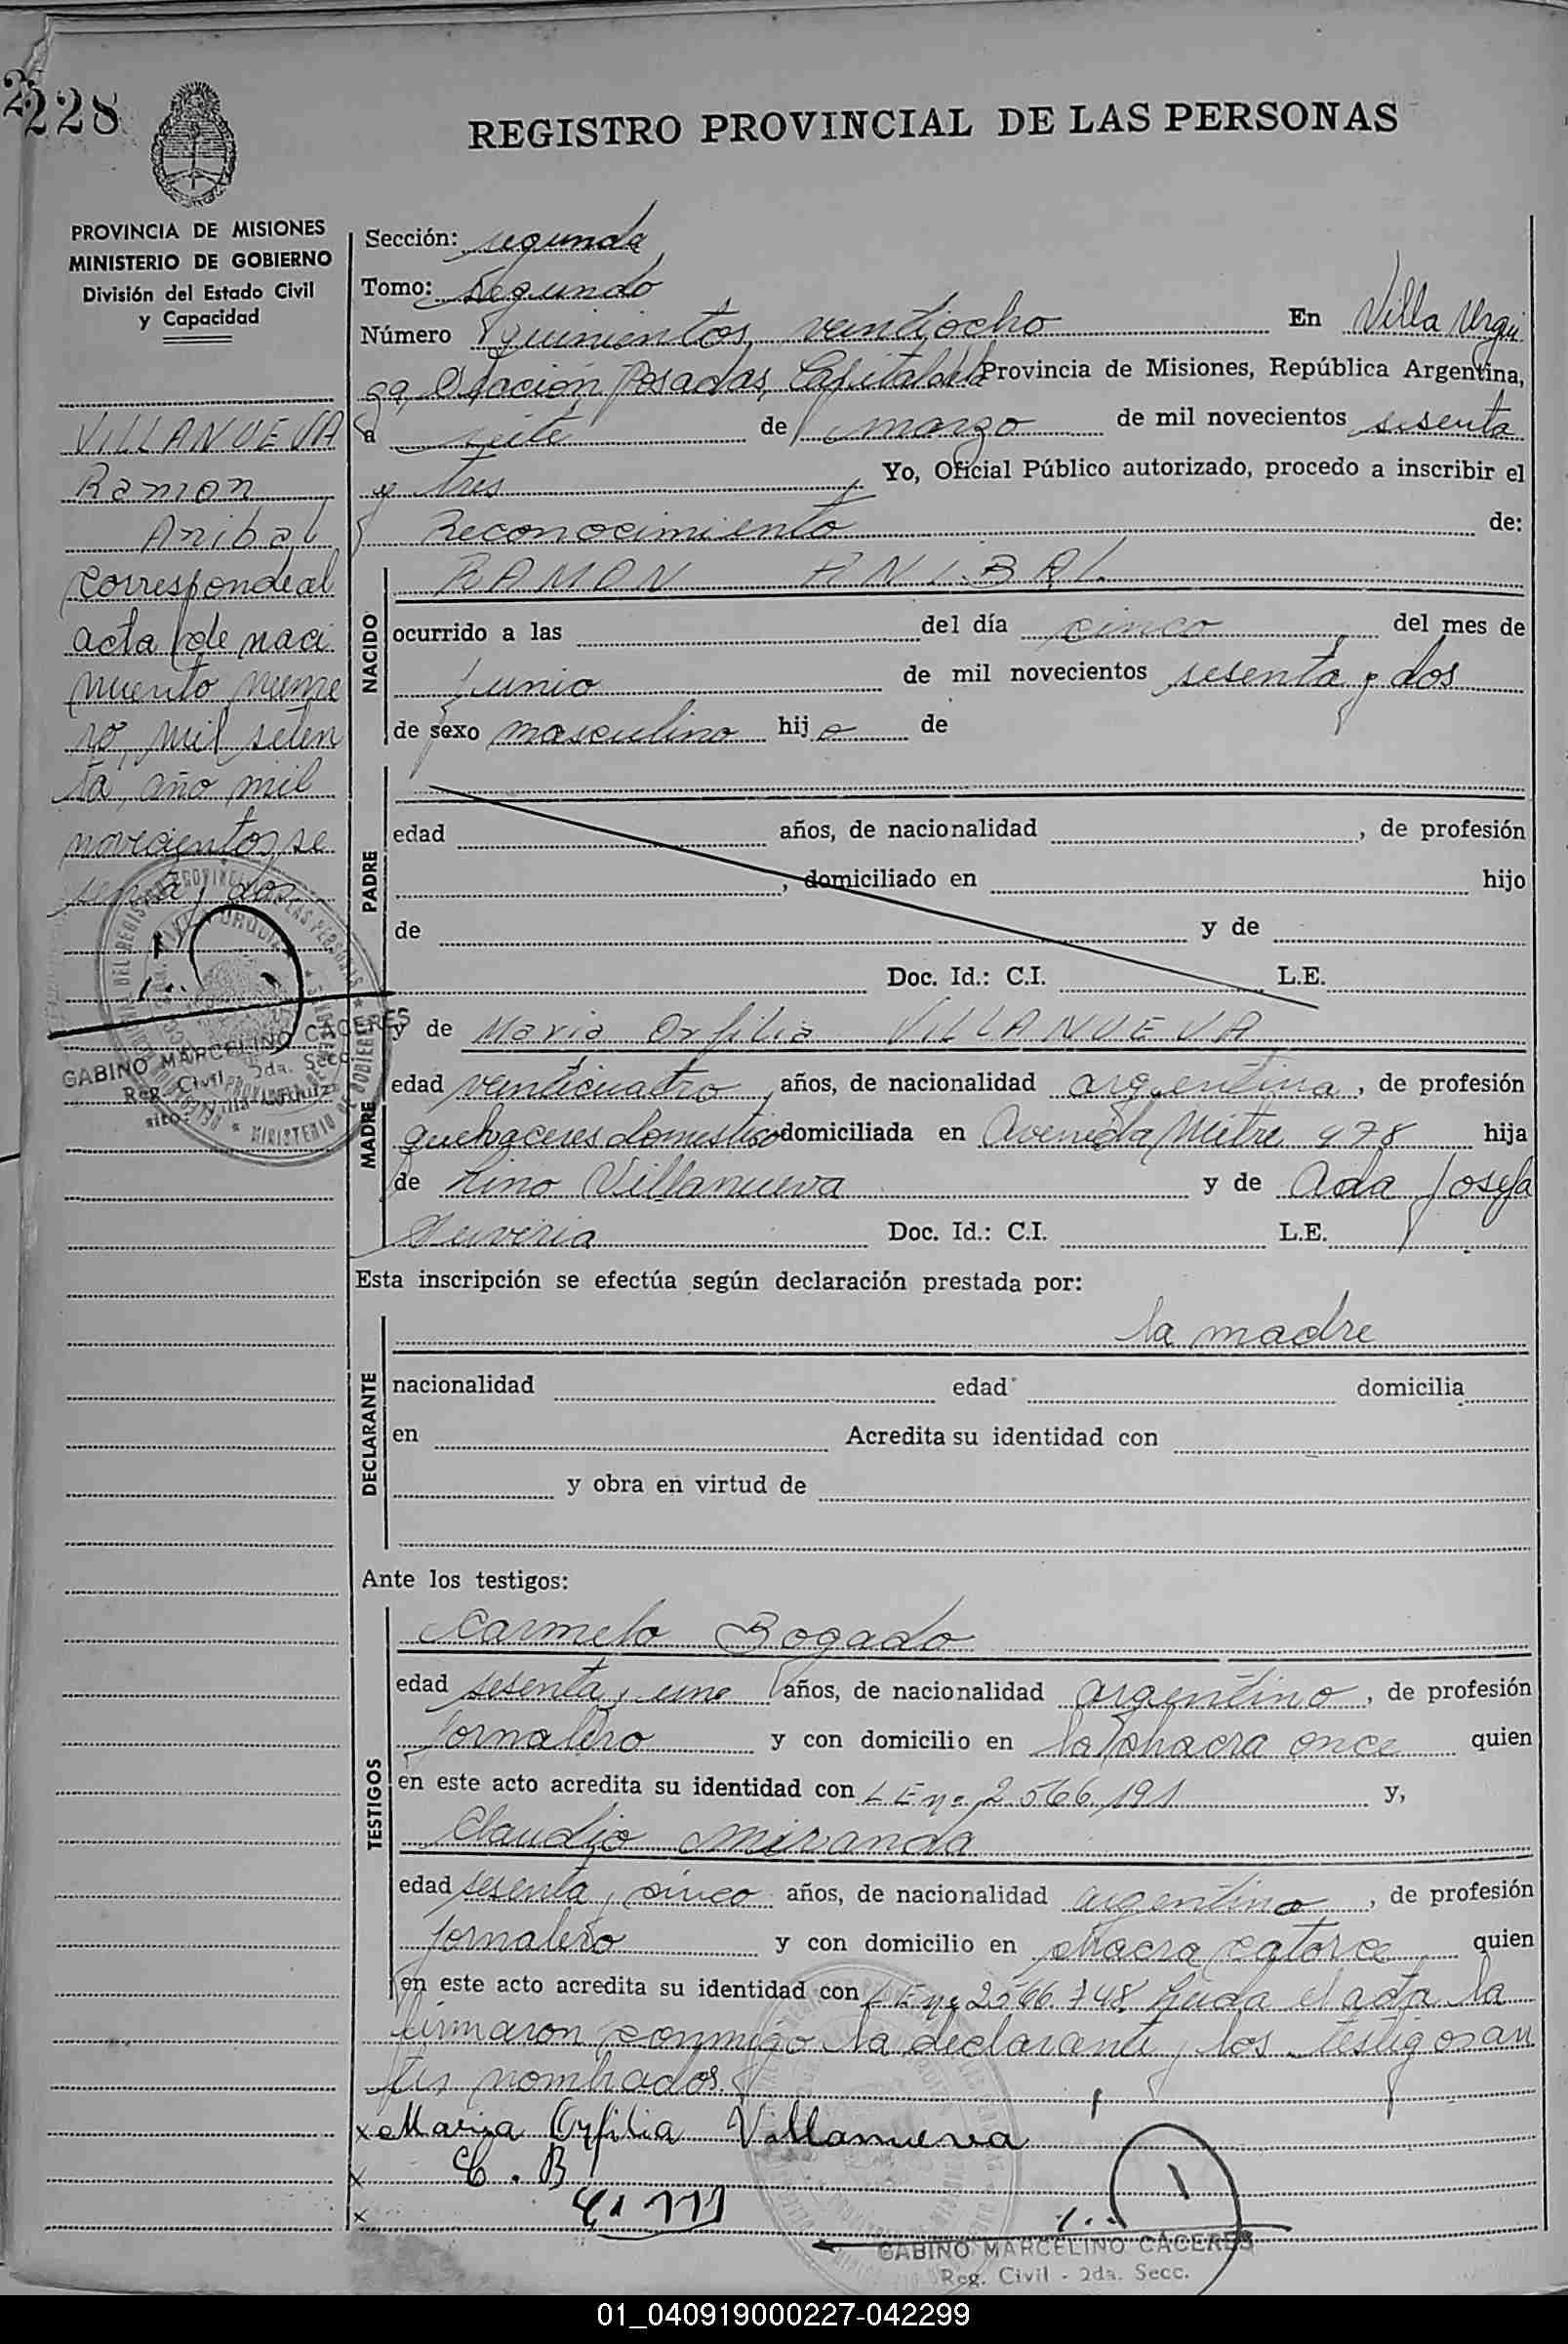 228
REGISTRO PROVINCIAL DE LAS PERSONAS
PROVINCIA DE MISIONES
MINISTERIO DE GOBIERNO
División del Estado Civil
y Capacidad
VILLANUEVA
Ramon
Anibal
corresponde al
acta de naci
miento nume
ro, mil seten
ta, año mil
novecientos se
senta y dos
GABINO MARCELINO CACERES
Reg. Civil 2da. Secc.
Sección: segunda
Tomo: Segundo
Número quinientos veintiocho En Villa Urqui
za, Estación Posadas, Capital de la Provincia de Misiones, República Argentina,
a siete de marzo de mil novecientos sesenta
y tres Yo, Oficial Público autorizado, procedo a inscribir el
Reconocimiento de:
NACIDO
RAMON ANIBAL
ocurrido a las del día cinco del mes de
junio de mil novecientos sesenta y dos
de sexo masculino hijo de
PADRE
edad años, de nacionalidad , de profesión
, domiciliado en hijo
de y de
Doc. Id.: C.I. L.E.
MADRE
y de Maria Orfilia VILLANUEVA
edad veinticuatro años, de nacionalidad argentina, de profesión
quehaceres domestico domiciliada en Avenida Mitre 478 hija
de Lino Villanueva y de Ada Josefa
Doc. Id.: C.I. L.E.
Esta inscripción se efectúa según declaración prestada por:
DECLARANTE
la madre
nacionalidad edad domicilia
en Acredita su identidad con
y obra en virtud de
Ante los testigos:
TESTIGOS
Carmelo Bogado
edad sesenta y uno años, de nacionalidad argentino, de profesión
jornalero y con domicilio en la chacra once quien
en este acto acredita su identidad con L E nº 2.566.191 y,
Claudio Miranda
edad sesenta y cinco años, de nacionalidad argentino, de profesión
jornalero y con domicilio en chacra catorce quien
en este acto acredita su identidad con L E nº 2566.748 Leida el acta la
firmaron conmigo la declarante y los testigos an
tes nombrados.
x Maria Orfilia Villanueva
x C. B
x
GABINO MARCELINO CACERES
Reg. Civil - 2da. Secc.
01_040919000227-042299